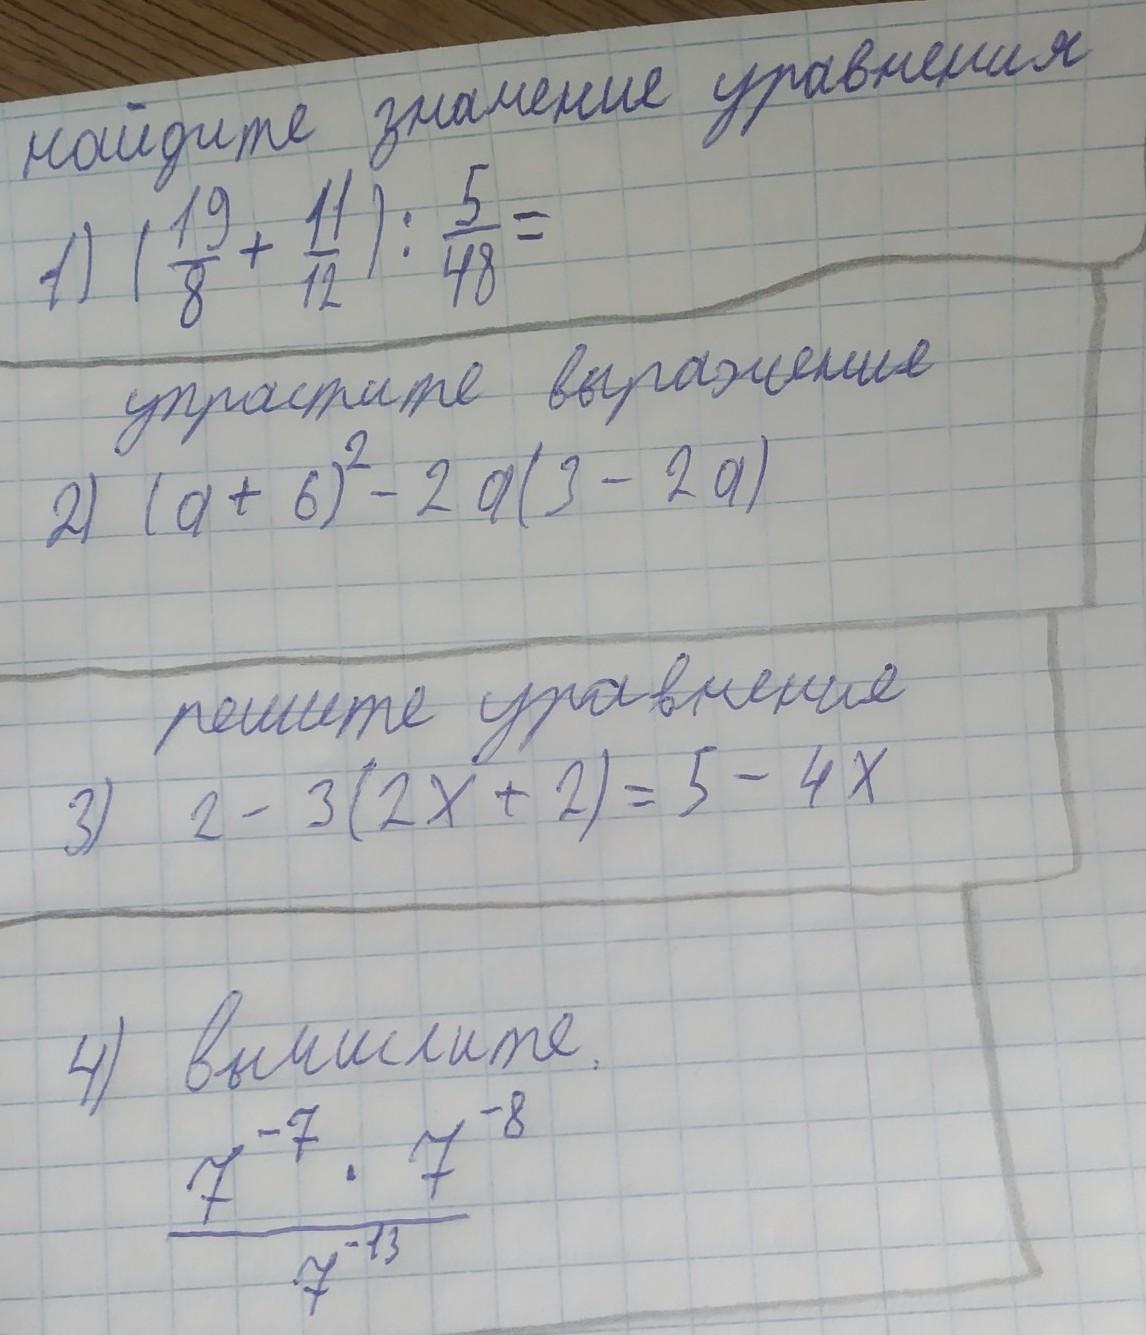 найдите значение уравнения
1) (19/8 + 11/12) : 5/48 =
упрастите выражение
2) (a + 6)² - 2a(3 - 2a)
решите уравнение
3) 2 - 3(2x + 2) = 5 - 4x
4) вычислите.
7⁻⁷ · 7⁻⁸
7⁻¹³